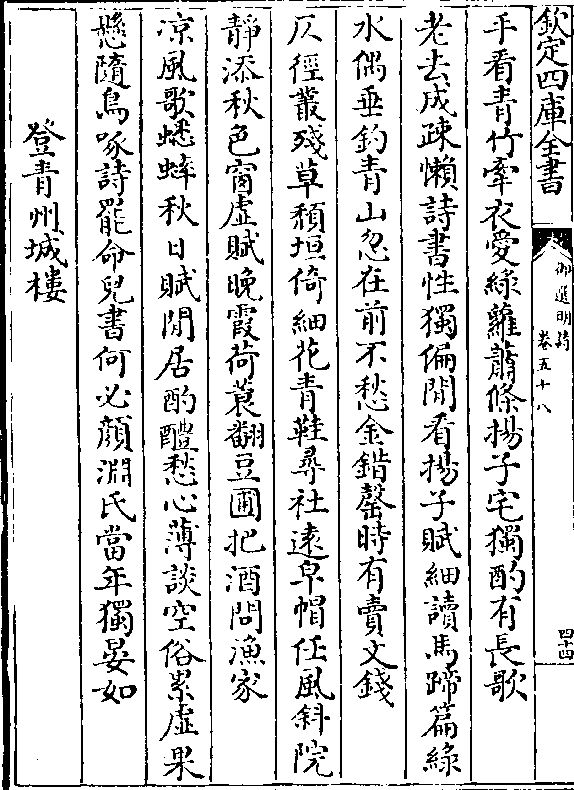 欽定四庫全書
御選明詩
卷五十八
四十四
手看青竹牽衣愛緑蘿蕭條揚子宅獨酌有長歌
老去成疎懶詩書性獨偏閒看揚子賦細讀馬蹄篇緑
水偶垂釣青山忽在前不愁金錯罄時有賣文錢
仄徑叢殘草頽垣倚細花青鞋尋社逺皁帽任風斜院
靜添秋色窗虚賦晚霞荷蓑翻豆圃把酒問漁家
凉風歌蟋蟀秋日賦閒居酌醴愁心薄談空俗累虚果
懸隨鳥啄詩罷命兒書何必顔淵氏當年獨晏如
登青州城樓